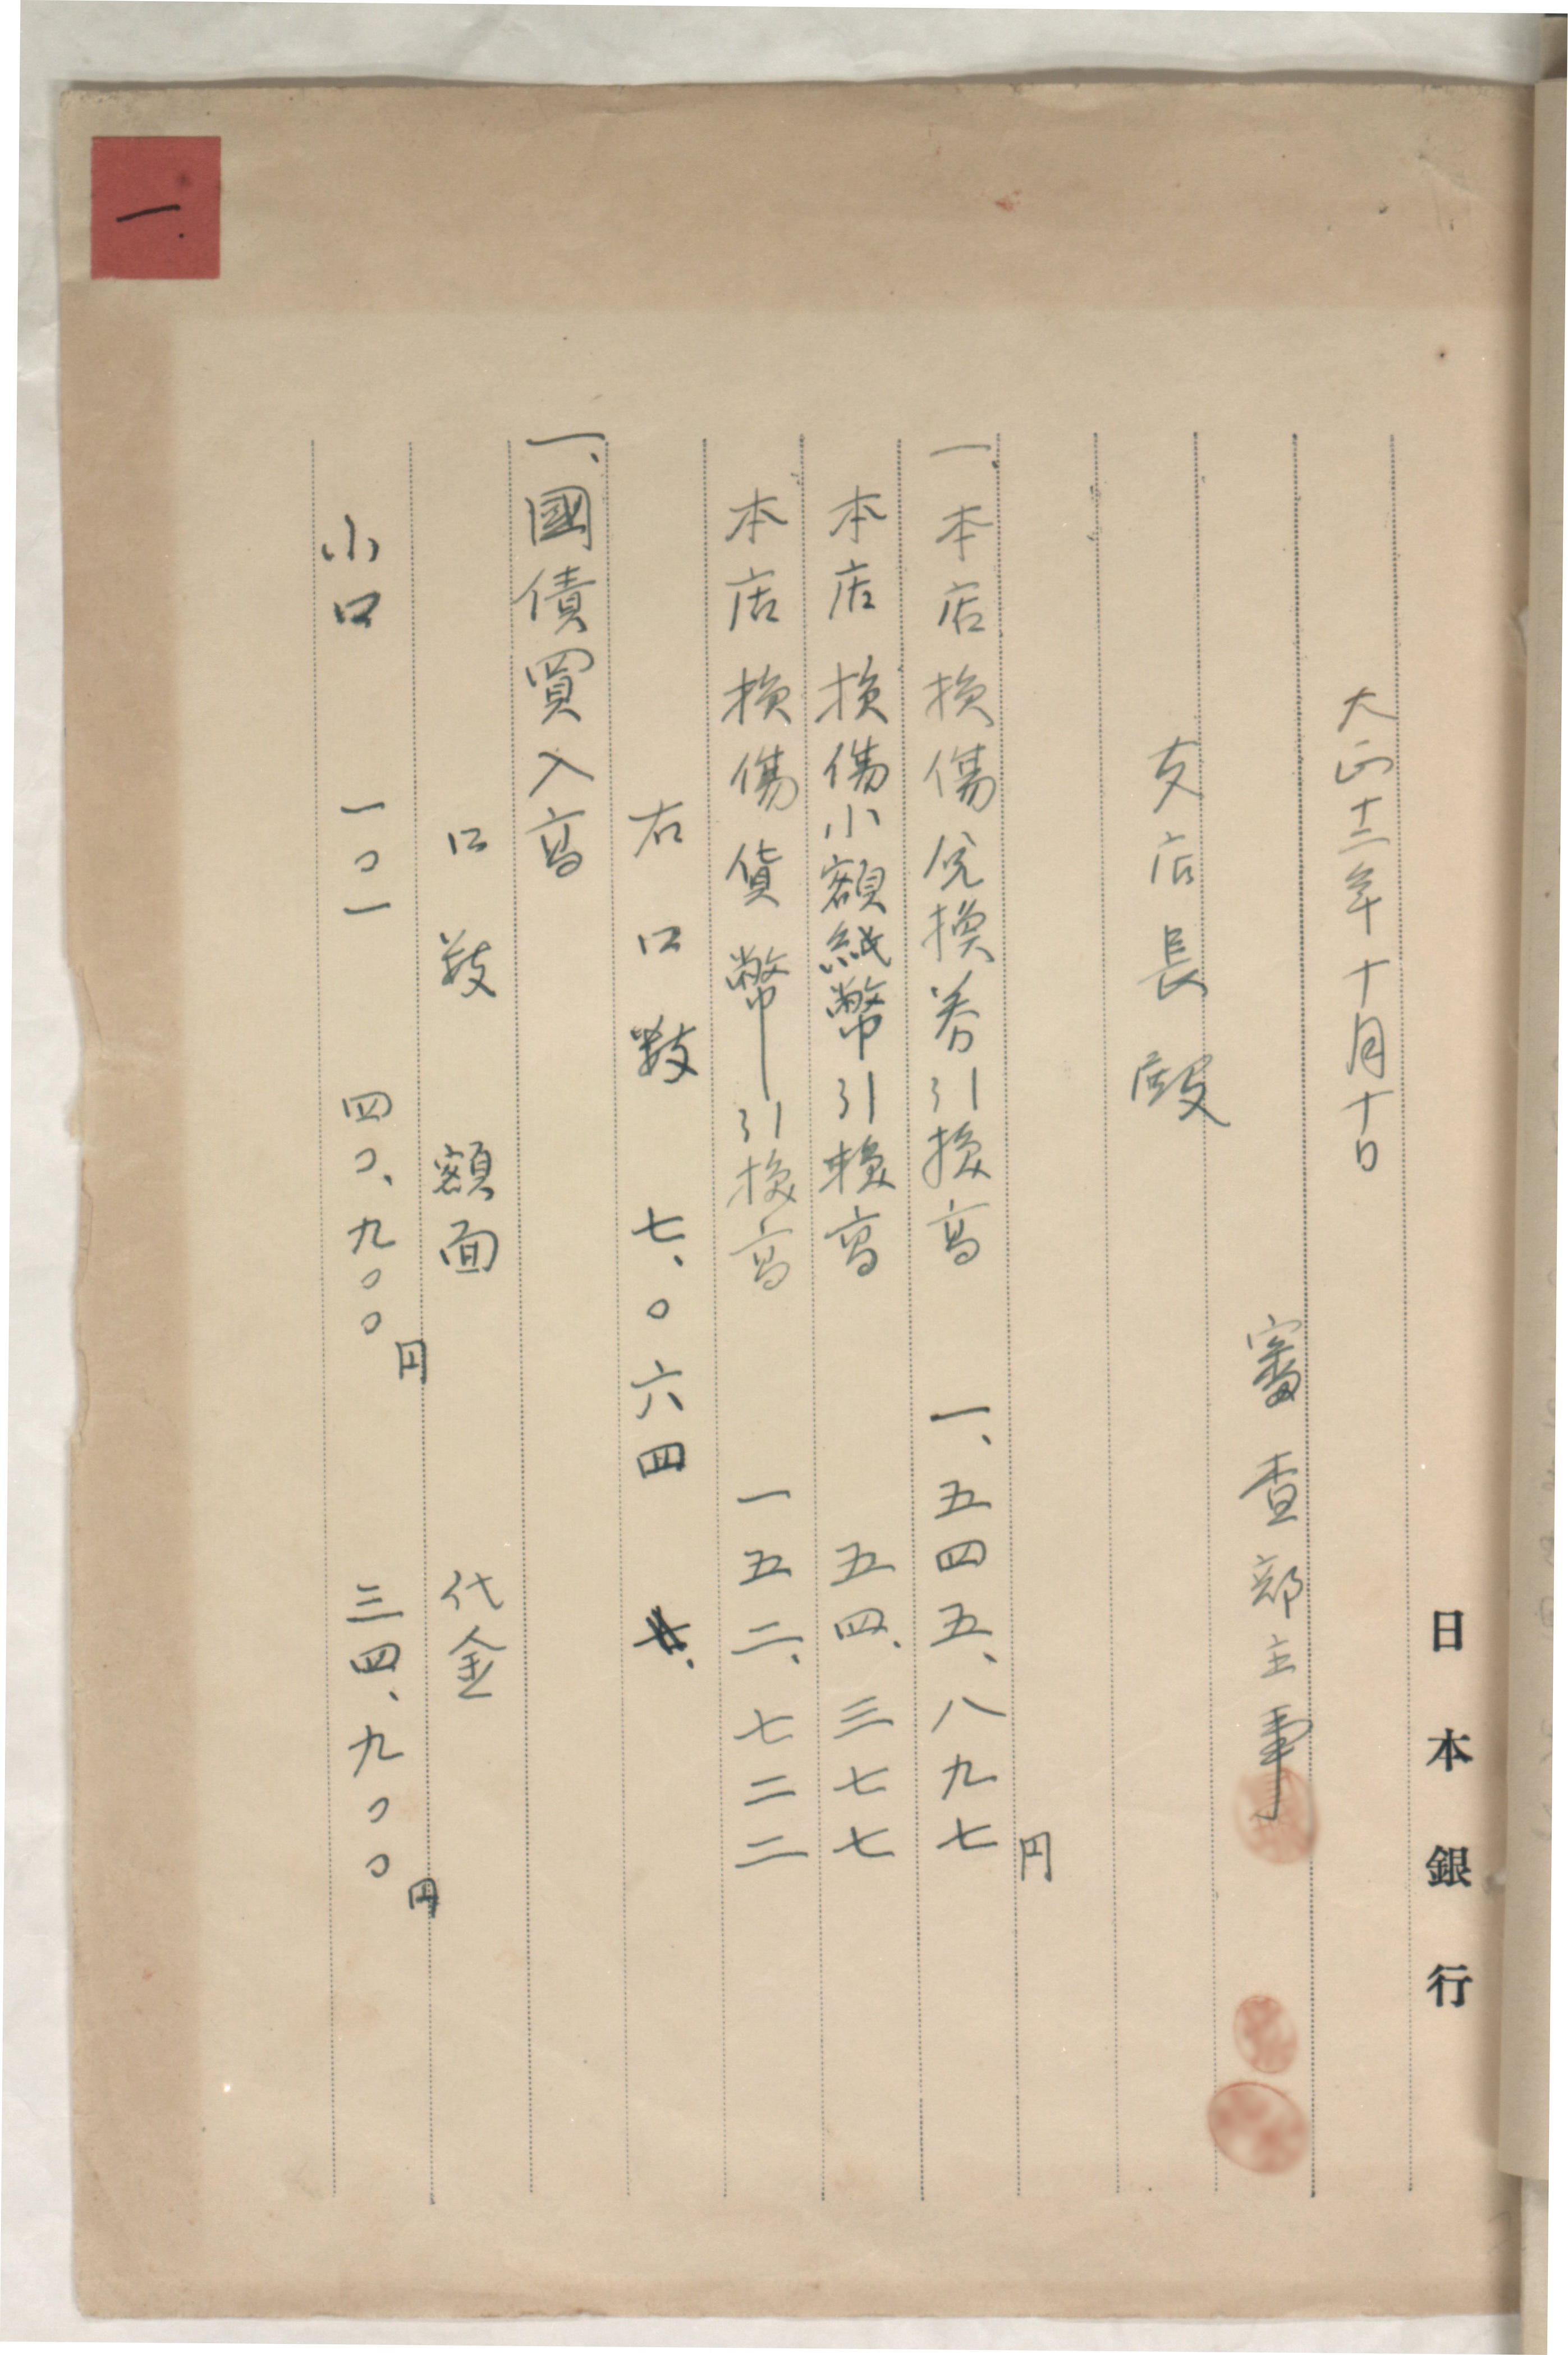 日本銀行
大正十二年十月十日
審査部主事
支店長殿
円
一、本店損傷兌換券引換高 一、五四五、八九七
本店損傷小額紙幣引換高 五四、三七七
本店損傷貨幣引換高 一五二、七二二
右口数 七、〇六四
一、國債買入高
口数 額面 代金
円 円
小口 一〇一 四〇、九〇〇 三四、九〇〇
一